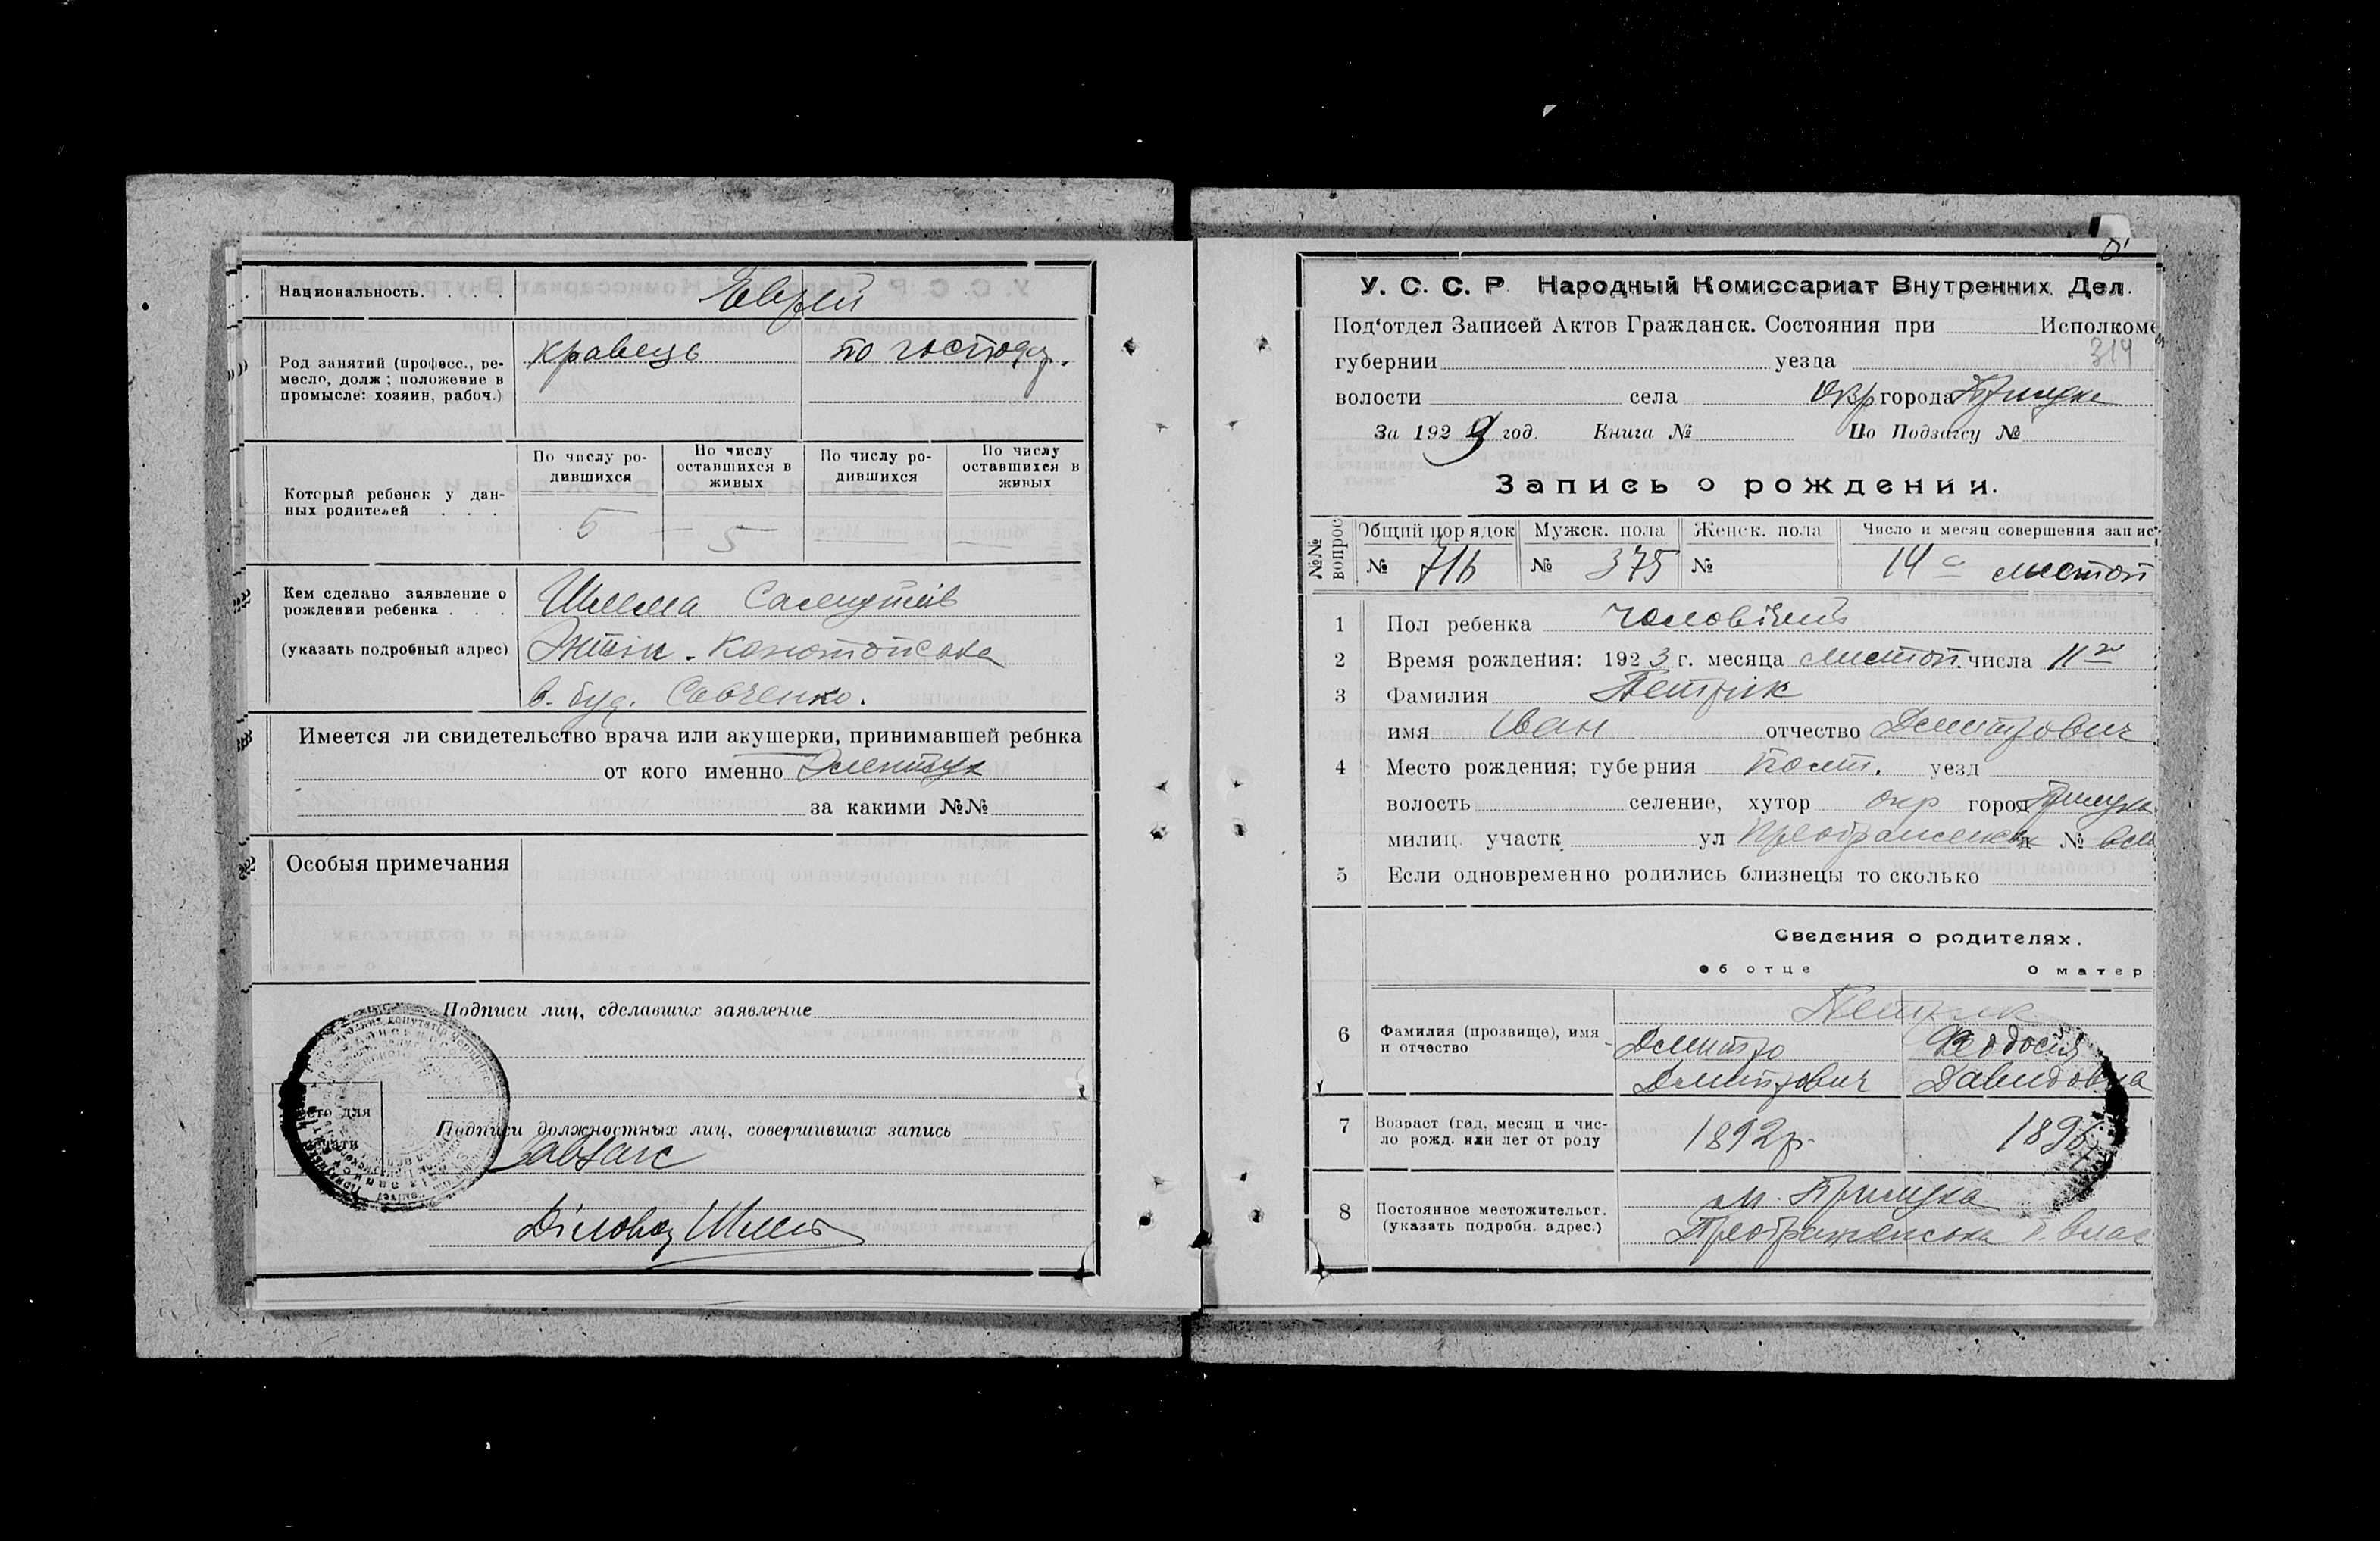 Национальность. . . . .
Еврей
Род занятий (професс., ре-
месло, долж; положение в
промысле: хозяин, рабоч.)
кравець
по господ.
Который ребенок у дан-
ных родителей . . .
По числу ро-
дившихся
По числу
оставшихся в
живых
По числу ро-
дившихся
По числу
оставшихся в
живых
5
5
Кем сделано заявление о
рождении ребенка . . .
(указать подробный адрес)
Конотопська
в. буд. Савченко.
Имеется ли свидетельство врача или акушерки, принимавшей ребнка
от кого именно
за какими №№
Особыя примечания
Подписи лиц, сделавших заявление
Место для
печати
Подписи должностных лиц, совершивших запись
Завзагс
Діловод
У. С. С. Р. Народный Комиссариат Внутренних Дел.
Под'отдел Записей Актов Гражданск. Состояния при Исполкоме
314
губернии уезда
волости села окр города Прилуке
За 1923 год. Книга № По Подзагсу №
Запись о рождении.
№№ вопрос
Общий порядок
Мужск. пола
Женск. пола
Число и месяц совершения запис
№ 716
№ 375
№
14 листоп
1 Пол ребенка чоловічий
2 Время рождения: 1923 г. месяца листоп. числа 11
3 Фамилия Петрік
имя Іван отчество Дмитрович
4 Место рождения; губерния Полт. уезд
волость селение, хутор окр город Прилука
милиц. участк. ул Преображенськ №
5 Если одновременно родились близнецы то сколько
Сведения о родителях.
об отце
о матер
6 Фамилия (прозвище), имя
и отчество
Петрик
Дмитро
Дмитрович
Феодосія
Давидовна
7 Возраст (год, месяц и чис-
ло рожд. или лет от роду
1892р.
8 Постоянное местожительст.
(указать подробн. адрес.)
м. Прилука
Преображенська в. влас